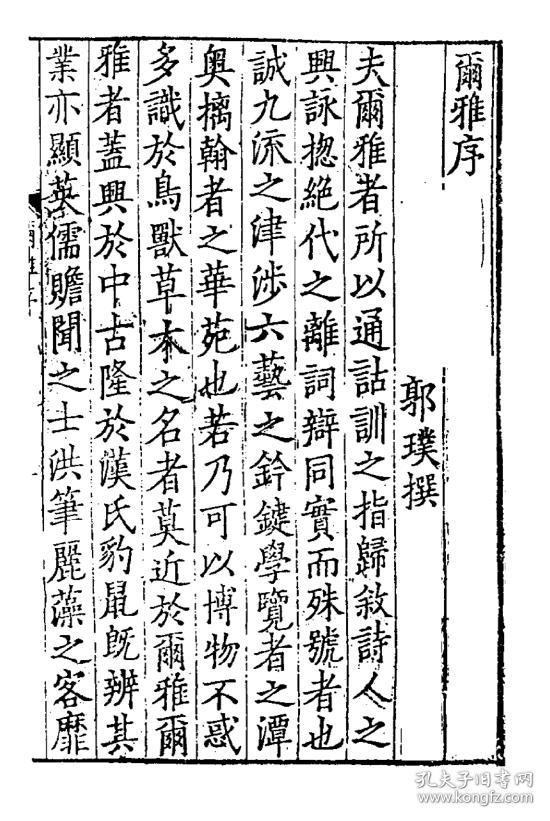 爾雅序
郭璞撰
夫爾雅者所以通詁訓之指歸敘詩人之
興詠揔絕代之離詞辯同實而殊號者也
誠九流之津涉六藝之鈐鍵學覽者之潭
奥摛翰者之華苑也若乃可以博物不惑
多識於鳥獸草木之名者莫近於爾雅爾
雅者蓋興於中古隆於漢氏豹鼠既辨其
業亦顯英儒贍聞之士洪筆麗藻之客靡
孔夫子旧书网
www.kongfz.com